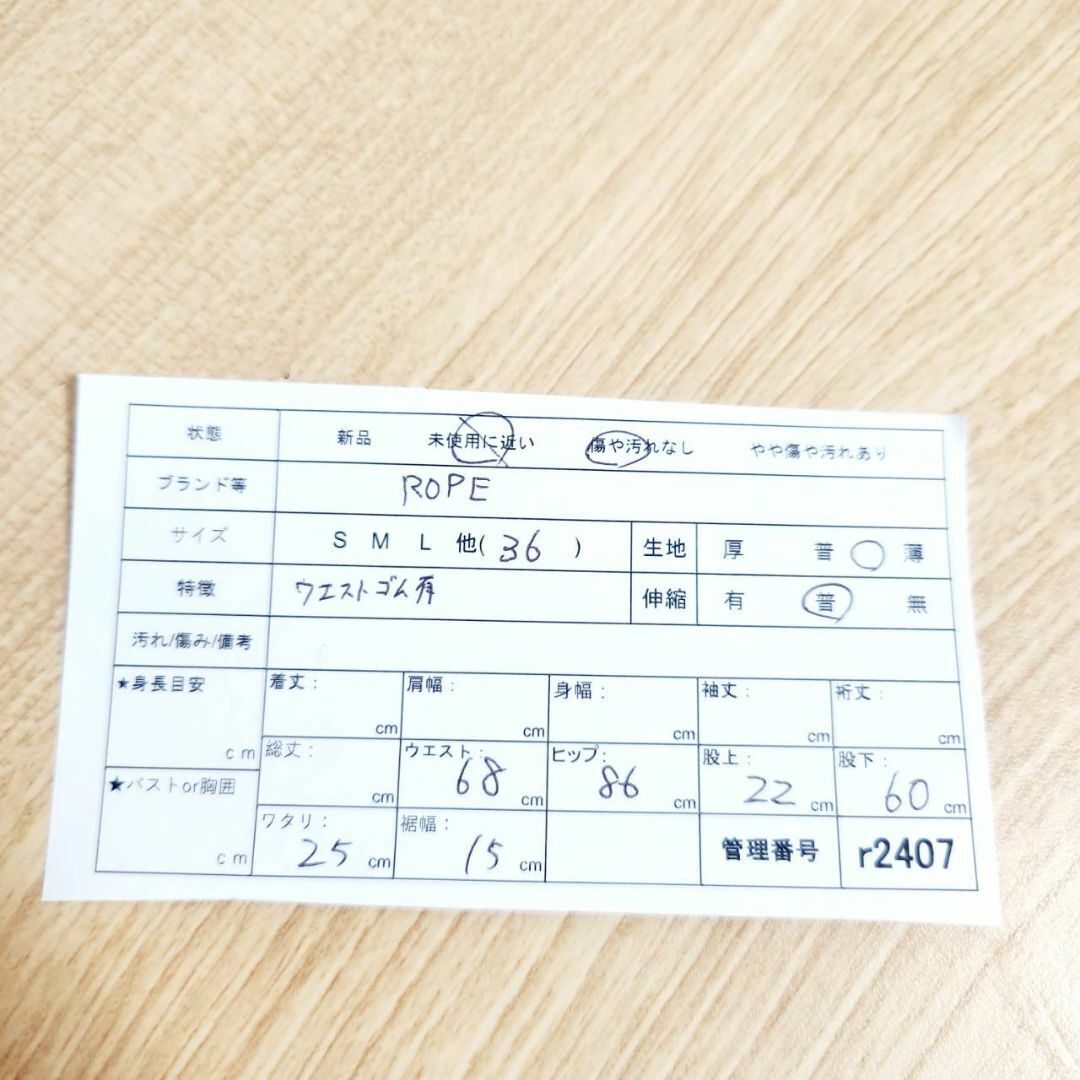 状態 新品 未使用に近い 傷や汚れなし やや傷や汚れあり
ブランド等 ROPE
サイズ S M L 他( 36 ) 生地 厚 普 薄
特徴 ウエストゴム有 伸縮 有 普 無
汚れ/傷み/備考
★身長目安 cm 着丈: cm 肩幅: cm 身幅: cm 袖丈: cm 裄丈: cm
総丈: cm ウエスト: 68 cm ヒップ: 86 cm 股上: 22 cm 股下: 60 cm
★バストor胸囲 cm ワタリ: 25 cm 裾幅: 15 cm 管理番号 r2407